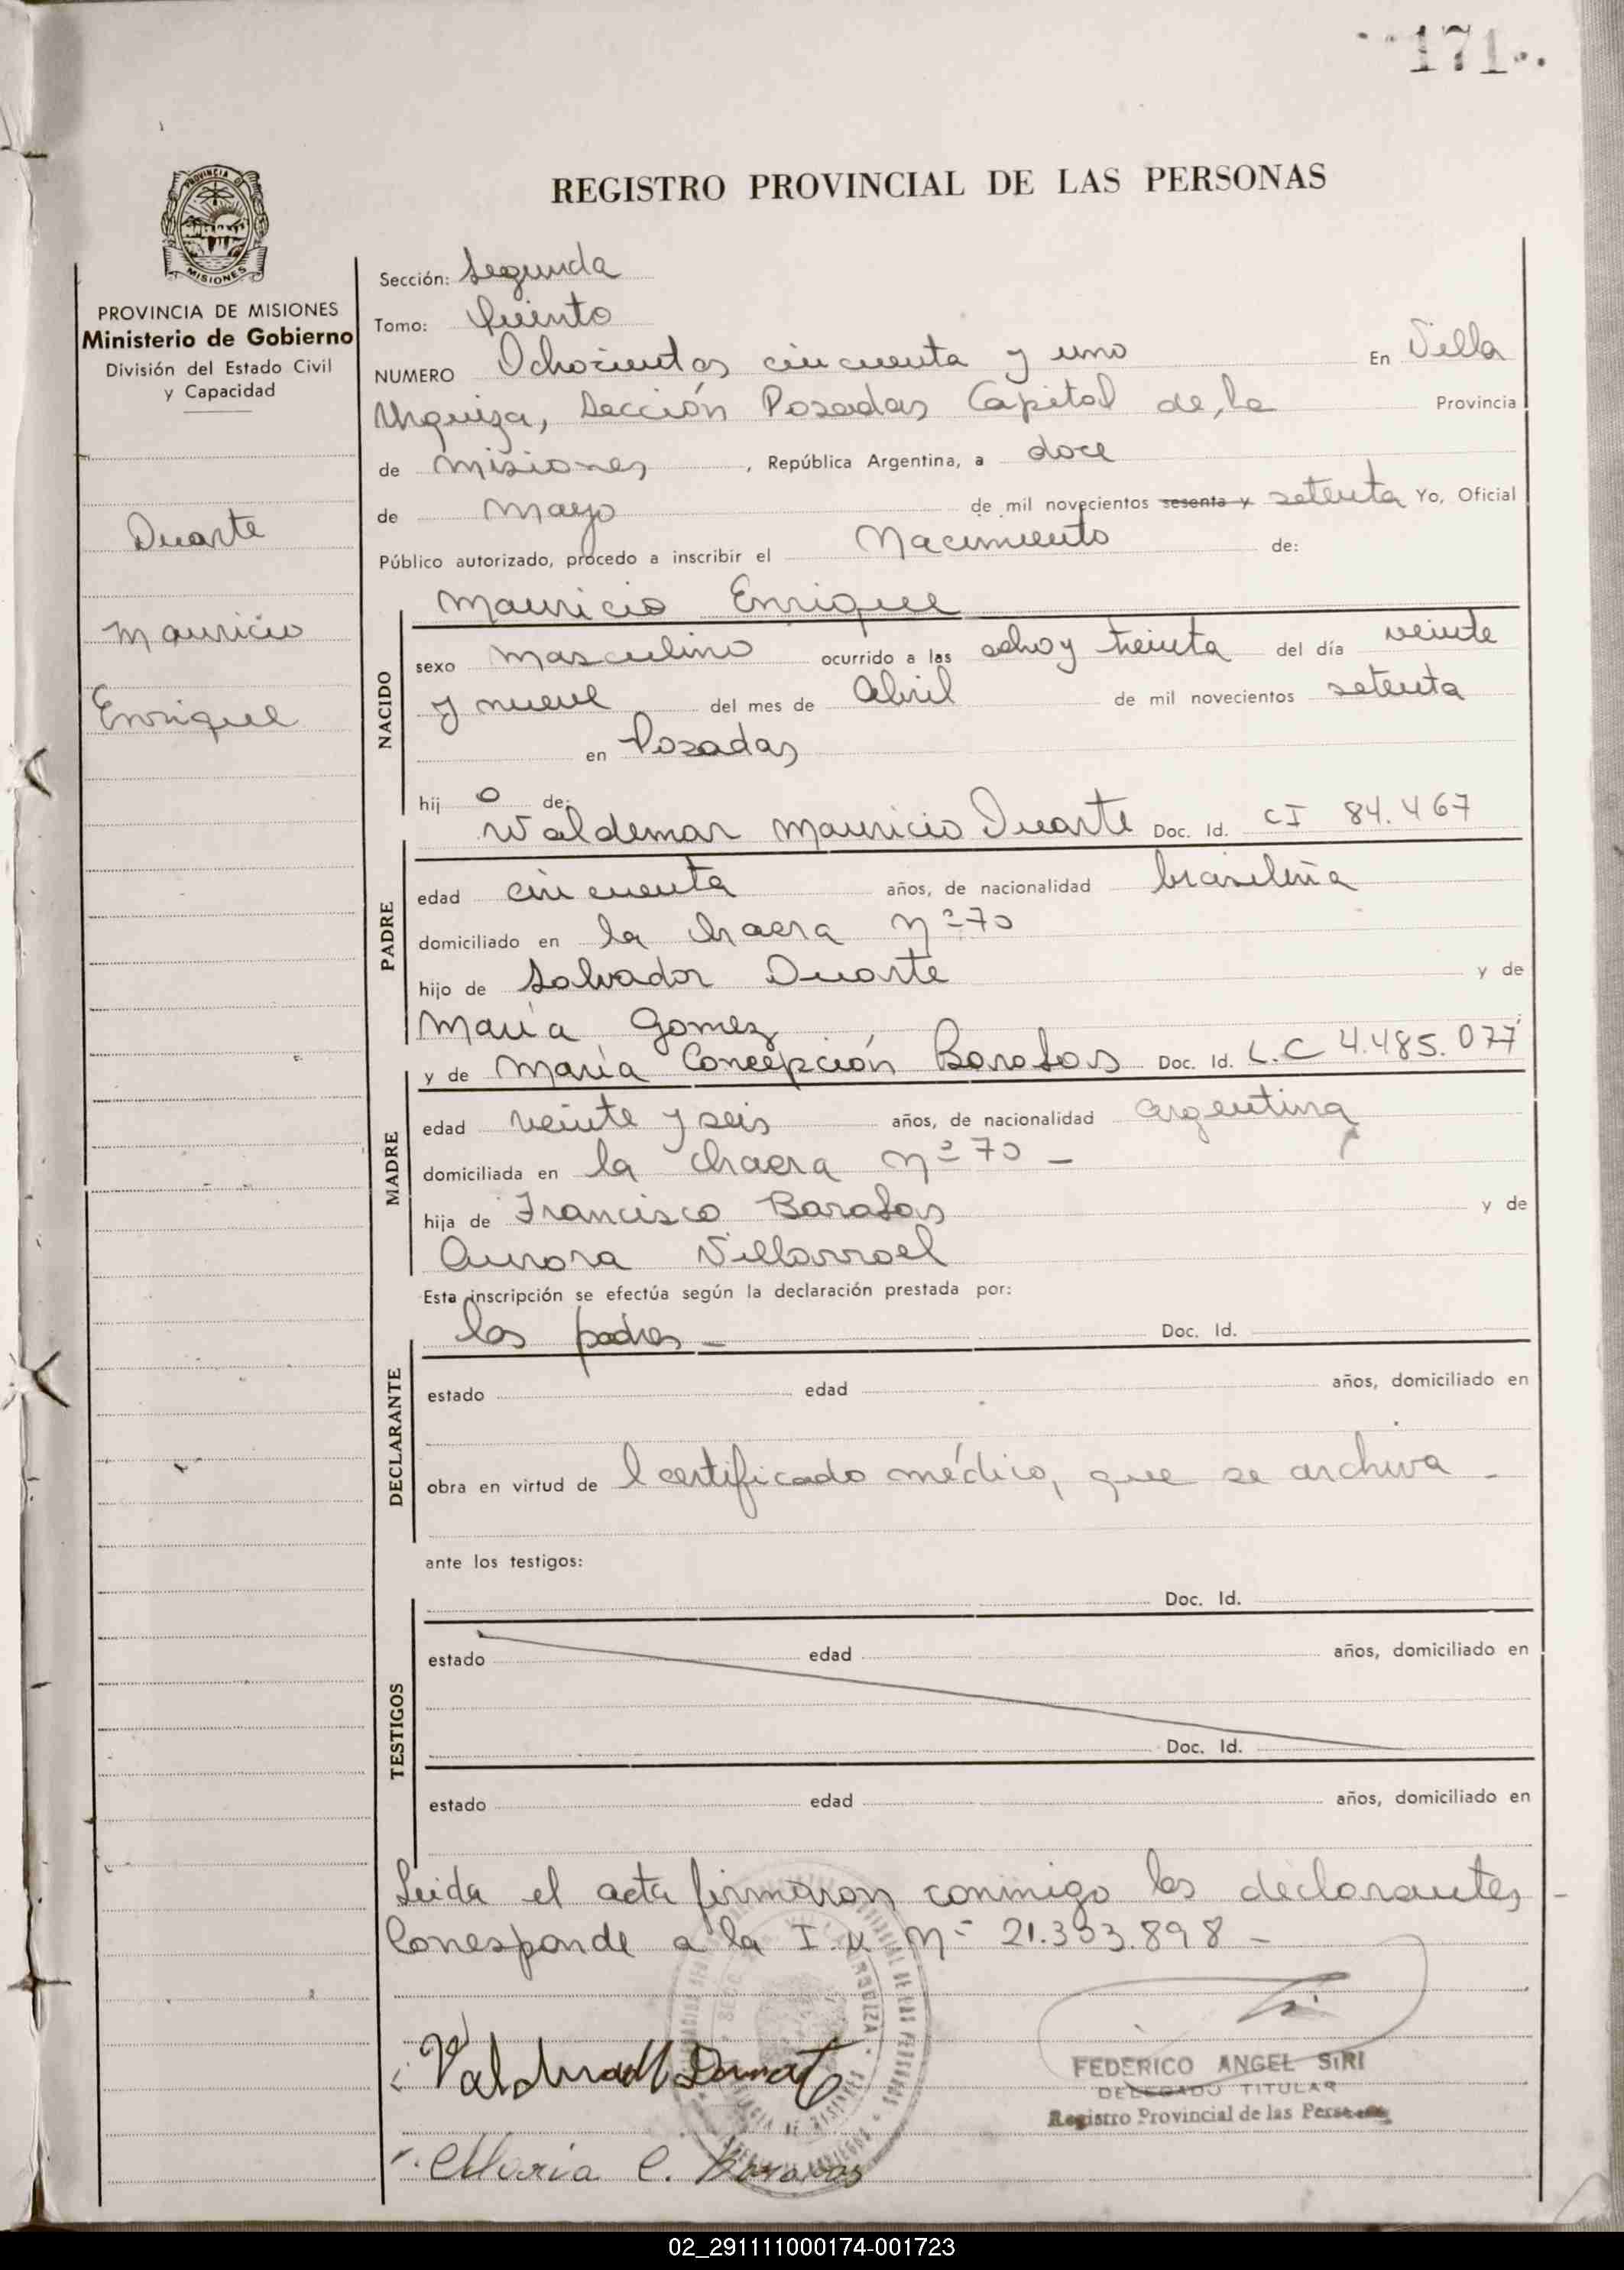 171
REGISTRO PROVINCIAL DE LAS PERSONAS
MISIONES
PROVINCIA DE MISIONES
Ministerio de Gobierno
División del Estado Civil
y Capacidad
Duarte
Mauricio
Enrique
Sección: Segunda
Tomo: Quinto
NUMERO Ochocientos cincuenta y uno En Villa
Urquiza, Sección Posadas Capital de la Provincia
de Misiones, República Argentina, a doce
de Mayo de mil novecientos sesenta y setenta Yo, Oficial
Público autorizado, procedo a inscribir el Nacimiento de:
Mauricio Enrique
NACIDO
sexo Masculino ocurrido a las ocho y treinta del día veinte
y nueve del mes de Abril de mil novecientos setenta
en Posadas
hij o de:
Waldemar Mauricio Duarte Doc. Id. CI 84.467
PADRE
edad cincuenta años, de nacionalidad brasileña
domiciliado en la chacra nº 70
hijo de Salvador Duarte y de
María Gomez
y de María Concepción Doc. Id. L.C 4.485.077
MADRE
edad veinte y seis años, de nacionalidad argentina
domiciliada en la chacra nº 70 -
hija de Francisco y de
Aurora Villarroel
Esta inscripción se efectúa según la declaración prestada por:
los padres - Doc. Id.
DECLARANTE
estado edad años, domiciliado en
obra en virtud de l certificado médico, que se archiva -
ante los testigos:
Doc. Id.
TESTIGOS
estado edad años, domiciliado en
Doc. Id.
estado edad años, domiciliado en
Leida el acta firmaron conmigo los declarantes -
Corresponde a la I. M. Nº 21.303.898 -
FEDERICO ANGEL SIRI
DELEGADO TITULAR
Registro Provincial de las Personas
María C.
02_291111000174-001723